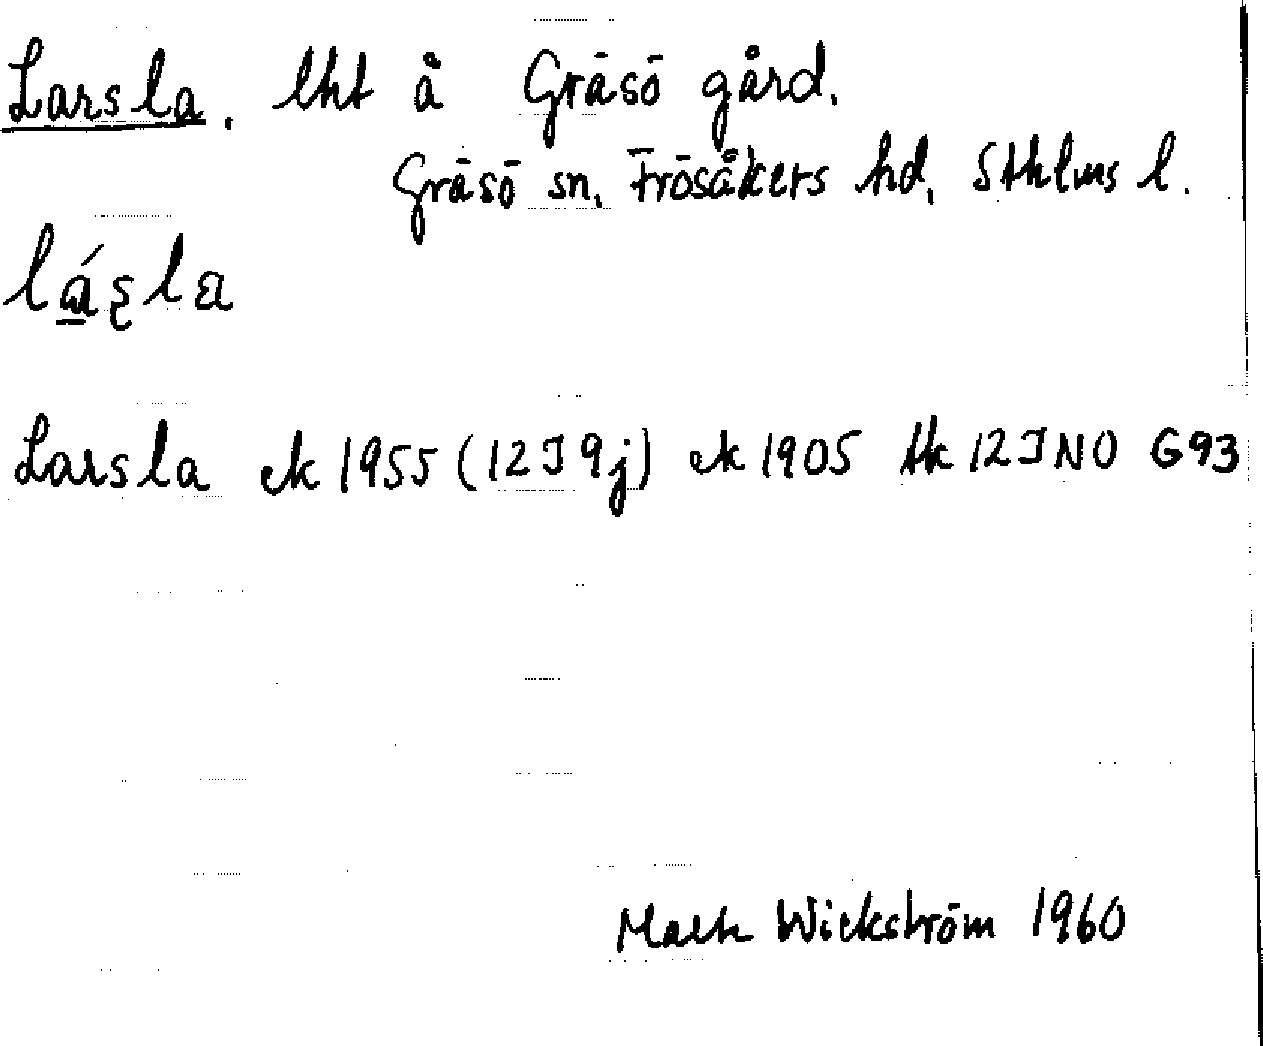 Larsla. lht å Gräsö gård.
Gräsö sn, Frösåkers hd, Sthlms l.
lásla
Larsla ek 1955 (12I9j) ek 1905 tk 12INO G93
Wickström 1960